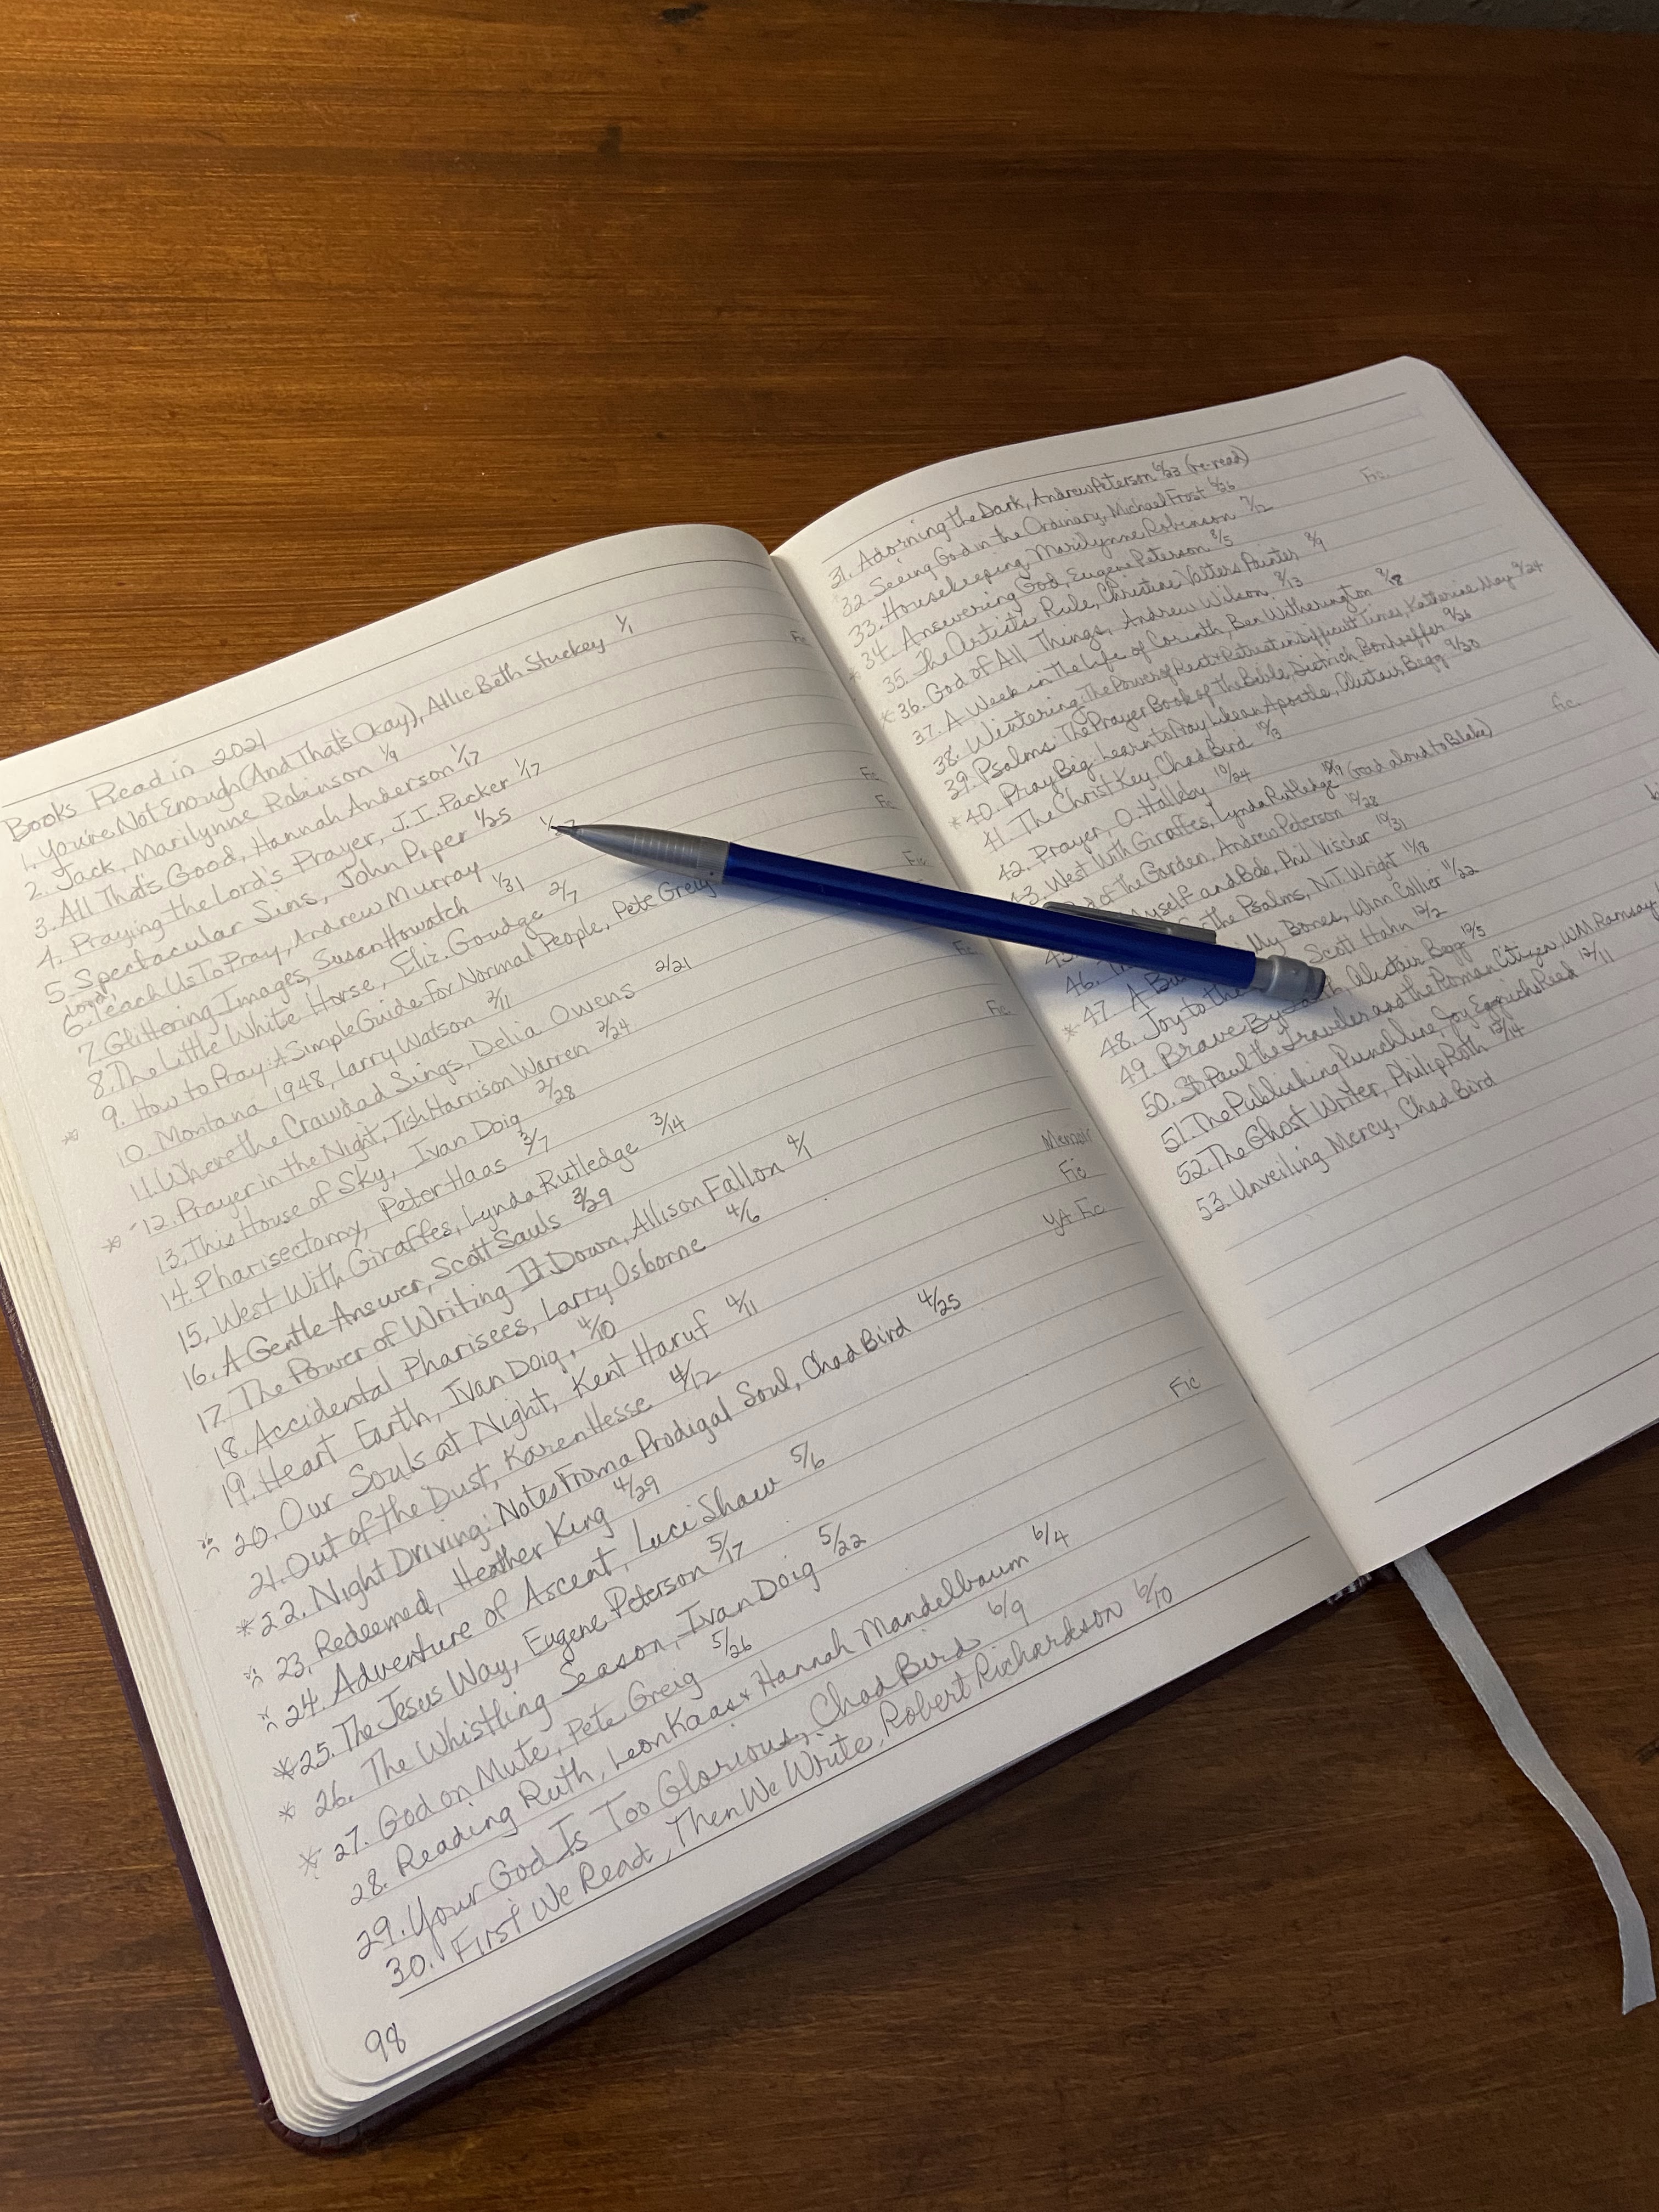 Books Read in 2021
1. You're Not Enough (And That's Okay), Allie Beth Stuckey 1/1
2. Jack, Marilynne Robinson 1/9 Fic
3. All That's Good, Hannah Anderson 1/17
4. Praying the Lord's Prayer, J.I. Packer 1/17
5. Spectacular Sins, John Piper 1/25
Lord,
6. Teach Us To Pray, Andrew Murray
7. Glittering Images, Susan Howatch 1/31 Fic
8. The Little White Horse, Eliz. Goudge 2/7 Fic
* 9. How to Pray: A Simple Guide for Normal People, Pete Greig
10. Montana 1948, Larry Watson 2/11 Fic
11. Where the Crawdad Sings, Delia Owens 2/21
* 12. Prayer in the Night, Tish Harrison Warren 2/24
13. This House of Sky, Ivan Doig 2/28
14. Pharisectomy, Peter Haas 3/7
15. West With Giraffes, Lynda Rutledge 3/14 Fic
16. A Gentle Answer, Scott Sauls 3/29
17. The Power of Writing It Down, Allison Fallon 4/1
18. Accidental Pharisees, Larry Osborne 4/6
19. Heart Earth, Ivan Doig, 4/10 Memoir
* 20. Our Souls at Night, Kent Haruf 4/11 Fic
21. Out of the Dust, Karen Hesse 4/12 YA Fic
* 22. Night Driving: Notes From a Prodigal Soul, Chad Bird 4/25
* 23. Redeemed, Heather King 4/29
* 24. Adventure of Ascent, Luci Shaw 5/6
* 25. The Jesus Way, Eugene Peterson 5/17
* 26. The Whistling Season, Ivan Doig 5/22 Fic
* 27. God on Mute, Pete Greig 5/26
28. Reading Ruth, Leon Kaas + Hannah Mandelbaum 6/4
29. Your God Is Too Glorious, Chad Bird 6/9
30. First We Read, Then We Write, Robert Richardson 6/10
98
31. Adorning the Dark, Andrew Peterson 6/23 (re-read)
32. Seeing God in the Ordinary, Michael Frost 6/26
33. Housekeeping, Marilynne Robinson 7/2 Fic.
34. Answering God, Eugene Peterson 8/5
35. The Artist's Rule, Christine Valters Painter 8/9
* 36. God of All Things, Andrew Wilson
37. A Week in the Life of Corinth, Ben Witherington 9/18
38. Wintering: The Power of Rest + Retreat in Difficult Times, Katherine May 9/24
39. Psalms: The Prayer Book of the Bible, Dietrich Bonhoeffer 9/26
* 40. Pray Big: Learn to Pray Like an Apostle, Alistair Begg 9/30
41. The Christ Key, Chad Bird 10/3
42. Prayer, O. Hallesby 10/24
43. West With Giraffes, Lynda Rutledge (read aloud to Blake) Fic.
of the Garden, Andrew Peterson 10/28
Myself and Bob, Phil Vischer 10/31
46. the Psalms, N.T. Wright 11/18
* 47. A My Bones, Winn Collier 11/22
48. Joy to the Scott Hahn 12/2
49. Brave By Faith, Alistair Begg 12/5
50. St. Paul the Traveler and the Roman Citizen, WM. Ramsay
51. The Publishing Punchline, Joy Eggerichs Reed 12/11
52. The Ghost Writer, Philip Roth 12/14
53. Unveiling Mercy, Chad Bird